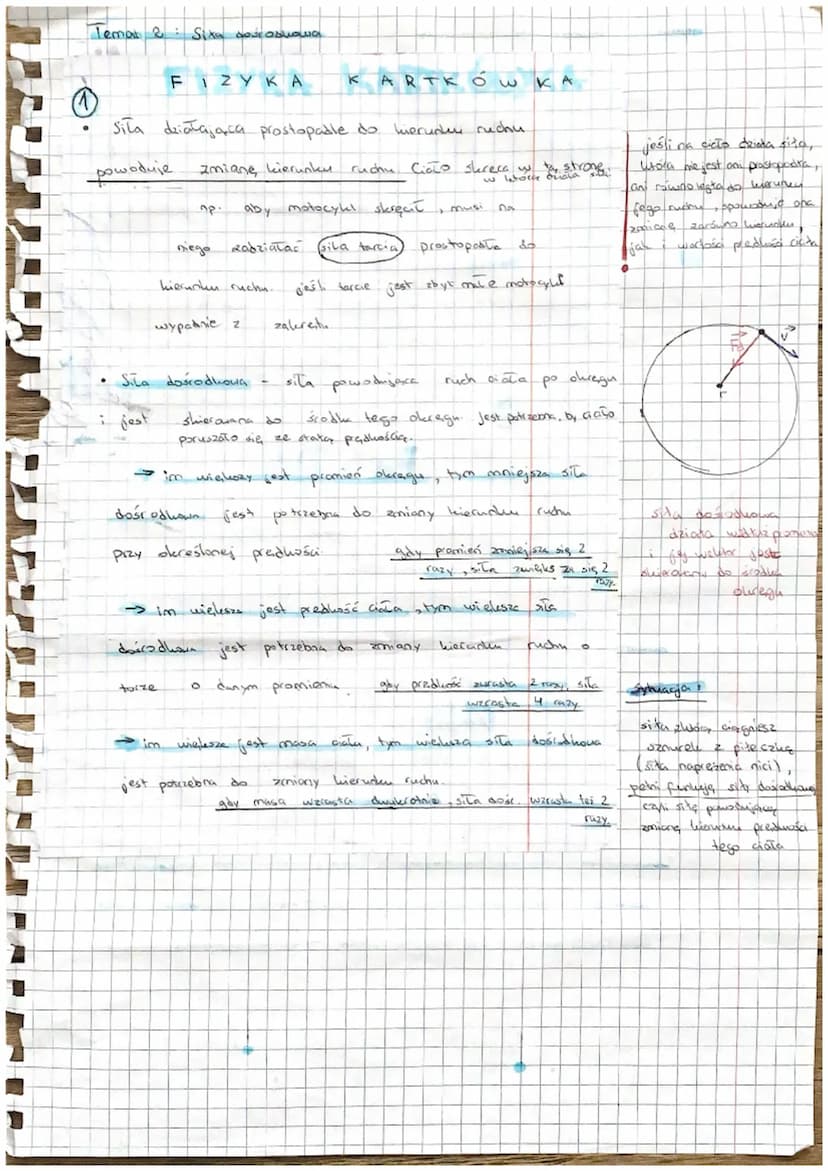 Temat 2 : Siła dośrodkowa
FIZYKA KARTKÓWKA
1
• Siła działająca prostopadle do kierunku ruchu
powoduje zmianę kierunku ruchu. Ciało skręca w tą stronę,
w którą działa siła.
np. aby motocykl skręcił, musi na
niego zadziałać siła tarcia prostopadła do
kierunku ruchu. jeśli tarcie jest zbyt małe motocykl
wypadnie z zakrętu
• Siła dośrodkowa - siła powodująca ruch ciała po okręgu
i jest skierowana do środka tego okręgu. Jest potrzebna, by ciało
poruszało się ze stałą prędkością.
→ im większy jest promień okręgu, tym mniejsza siła
dośrodkowa jest potrzebna do zmiany kierunku ruchu
przy określonej prędkości. gdy promień zmniejsza się 2
razy, siła zwiększa się 2
razy.
→ im większa jest prędkość ciała, tym większa siła
dośrodkowa jest potrzebna do zmiany kierunku ruchu o
torze o danym promieniu. gdy prędkość wzrasta 2 razy, siła
wzrasta 4 razy
→ im większa jest masa ciała, tym większa siła dośrodkowa
jest potrzebna do zmiany kierunku ruchu.
gdy masa wzrasta dwukrotnie, siła dośr. wzrasta też 2
razy.
jeśli na ciało działa siła,
która nie jest ani prostopadła,
ani równoległa do kierunku
jego ruchu, spowoduje ona
zmianę zarówno kierunku,
jak i wartości prędkości ciała
Fd
v
r
siła dośrodkowa
działa wzdłuż promienia
i jej wektor jest
skierowany do środka
okręgu
sytuacja:
siła z którą ciągniesz
sznurek z piłeczką
(siła naprężenia nici),
pełni funkcję siły dośrodkowej
czyli siły powodującej
zmianę kierunku prędkości
tego ciała